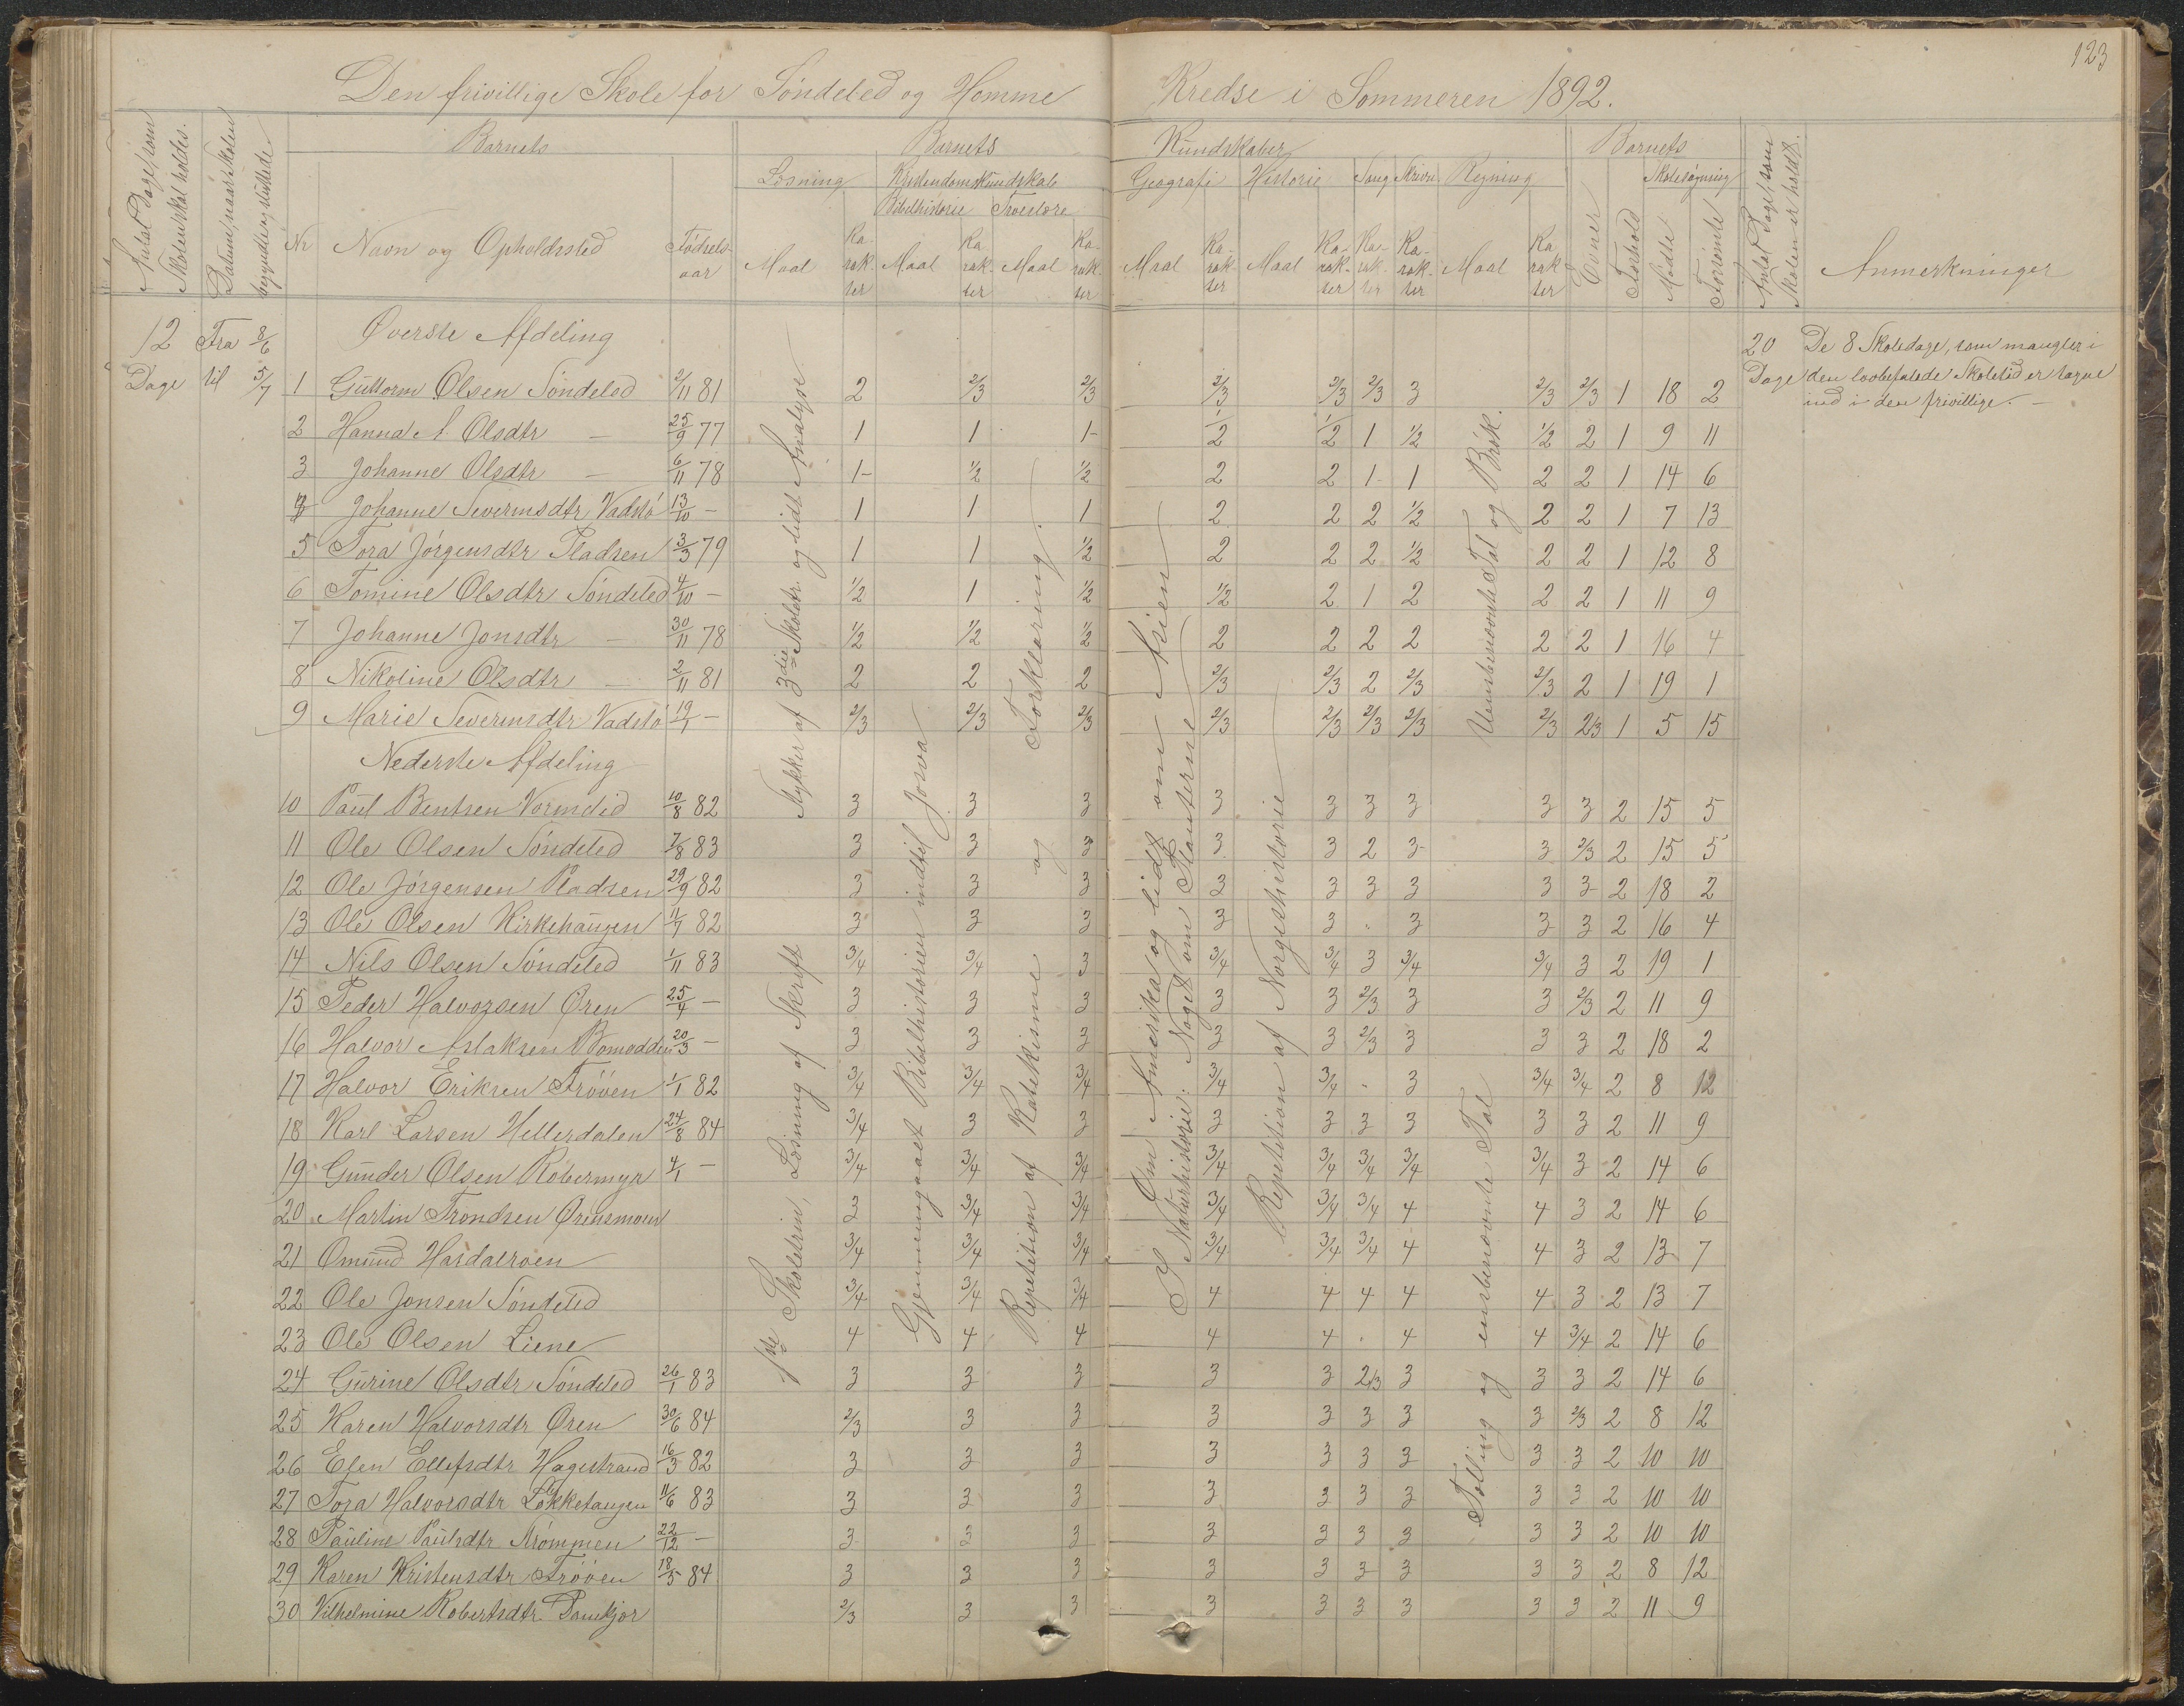 123
Den frivillige Skole for Söndeled og Homme Kredse i Sommeren 1892.
Antal Dage, som Skolen skal holdes.
Datum, naar Skolen begyndte og sluttede
Barnets
Nr
Navn og Opholdssted
Fødselsaar
Barnets Kundskaber
Læsning
Maal
Karakter
Kristendomskundskab
Bibelhistorie
Maal
Karakter
Troeslære
Maal
Karakter
Geografi
Maal
Karakter
Historie
Maal
Karakter
Sang
Karakter
Skrivn.
Karakter
Regning
Maal
Karakter
Barnets
Evner
Forhold
Skolesøgning
Mødte
Forsømte
Antal Dage, som Skolen er holdt.
Anmerkninger
12 Dage
Fra 8/6 til 5/7
Øverste Afdeling
20 Dage
De 8 Skoledage, som mangler i
den lovbefalede Skoletid er tagne
ind i den frivillige. —
1 Guttorm Olsen Söndeled 2/11 81 2 2/3 2/3 2/3 2/3 2/3 3 2/3 2/3 1 18 2
2 Hanna A. Olsdtr — 25/9 77 1 1 1- 1/2 1/2 1 1/2 1/2 2 1 9 11
3 Johanne Olsdtr — 6/11 78 1- 1/2 1/2 2 2 1- 1 2 2 1 14 6
4 Johanne Severinsdtr Vadstö 13/10 — 1 1 1 2 2 2 1/2 2 2 1 7 13
5 Tora Jörgensdtr Pladsen 3/3 79 1 1 1/2 2 2 2 1/2 2 2 1 12 8
6 Tomine Olsdtr Söndeled 4/10 — 1/2 1 1/2 1/2 2 1 2 2 2 1 11 9
7 Johanne Jonsdtr — 30/11 78 1/2 1/2 1/2 2 2 2 2 2 2 1 16 4
8 Nikoline Olsdtr — 2/11 81 2 2 2 2/3 2/3 2 2/3 2/3 2 1 19 1
9 Marie Severinsdtr Vadstö 19/1 — 2/3 2/3 2/3 2/3 2/3 2/3 2/3 2/3 2/3 1 5 15
Nederste Afdeling
10 Paul Bentsen Vormelid 10/8 82 3 3 3 3 3 3 3 3 3 2 15 5
11 Ole Olsen Söndeled 7/8 83 3 3 3 3 3 2 3- 3 2/3 2 15 5
12 Ole Jörgensen Pladsen 29/9 82 3 3 3 3 3 3 3 3 3 2 18 2
13 Ole Olsen Kirkehaugen 11/7 82 3 3 3 3 3 . 3 3 3 2 16 4
14 Nils Olsen Söndeled 1/11 83 3/4 3/4 3 3/4 3/4 3 3/4 3/4 3 2 19 1
15 Peder Halvorsen Øren 25/4 — 3 3 3 3 3 2/3 3 3 2/3 2 11 9
16 Halvor Aslaksen Bomodden 20/3 — 3 3 3 3 3 2/3 3 3 3 2 18 2
17 Halvor Eriksen Tröoen 1/1 82 3/4 3/4 3/4 3/4 3/4 . 3 3/4 3/4 2 8 12
18 Karl Larsen Hellersdalen 24/8 84 3/4 3 3 3 3 3 3 3 3 2 11 9
19 Gunder Olsen Röbermyr 4/1 — 3/4 3/4 3/4 3/4 3/4 3/4 3/4 3/4 3 2 14 6
20 Martin Trondsen Ørensmoen 3 3/4 3/4 3/4 3/4 3/4 4 4 3 2 14 6
21 Omund Hasdalsroen 3/4 3/4 3/4 3/4 3/4 3/4 4 4 3 2 13 7
22 Ole Jonsen Söndeled 3/4 3/4 3/4 4 4 4 4 4 3 2 13 7
23 Ole Olsen Liene 4 4 4 4 4 . 4 4 3/4 2 14 6
24 Gurine Olsdtr Söndeled 26/1 83 3 3 3 3 3 2/3 3 3 3 2 14 6
25 Karen Halvorsdtr Øren 30/6 84 2/3 3 3 3 3 3 3 3 2/3 2 8 12
26 Elen Ellefsdtr Hagestrand 16/3 82 3 3 3 3 3 3 3 3 3 2 10 10
27 Tora Halvorsdtr Løkketangen 11/6 83 3 3 3 3 3 3 3 3 3 2 10 10
28 Pauline Paulsdtr Strömmen 22/12 — 3 3 3 3 3 3 3 3 3 2 10 10
29 Karen Kristensdtr Tröoen 18/5 84 3 3 3 3 3 3 3 3 3 2 8 12
30 Vilhelmine Robertsdtr 2/3 3 3 3 3 3 3 3 3 2 11 9
Stykker af 3die Skoletr. og lidt Analyse
1ste Skoletrin, Læsning af Skrift
Gjennemgaaet Bibelhistorien indtil Josva
Repetition af Katekisme og Forklaring.
Om Amerika og lidt om Asien
I Naturhistorie: Noget om Planterne
Repetition af Norgeshistorie
Uensbenævnte Tal og Brök.
Tælling og ensbenævnte Tal